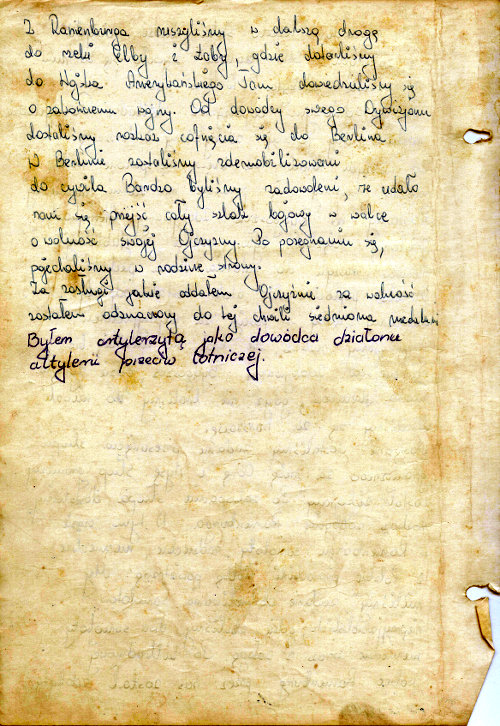 Z Ranienburga ruszyliśmy w dalszą drogę
do rzeki Elby i Łaby, gdzie dotarliśmy
do Wojska Amerykańskiego Tam dowiedzieliśmy się
o zakończeniu wojny. Od dowódcy swego Dywizjonu
dostaliśmy rozkaz cofnięcia się do Berlina.
W Berlinie zostaliśmy zdemobilizowani
do cywila Bardzo byliśmy zadowoleni, że udało
nam się przejść cały szlak bojowy w walce
o wolność swojej Ojczyzny. Po pożegnaniu się,
pojechaliśmy w rodzinne strony.
Za zasługi jakie oddałem Ojczyźnie za wolność
zostałem odznaczony do tej chwili siedmioma medalami
Byłem artylerzytą jako dowódca działonu
altylerii przeciw lotniczej.